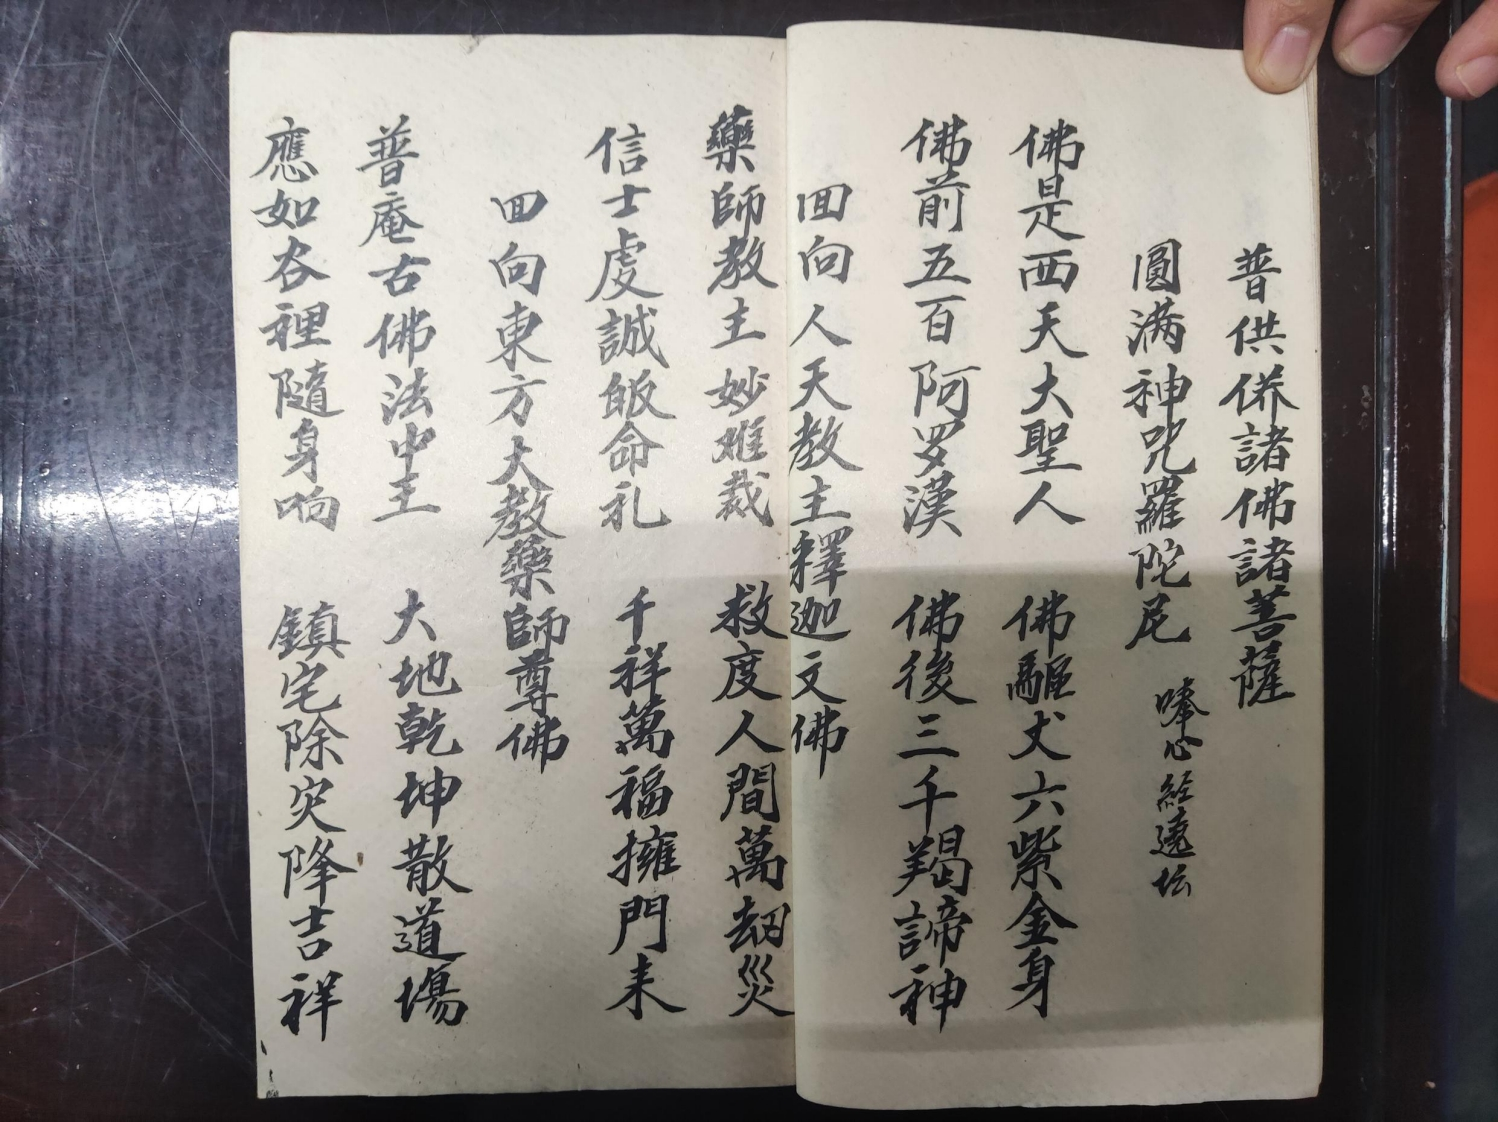 普供佛諸佛諸菩薩
圓滿神咒羅陀尼　唪心經遶坛
佛是西天大聖人　佛軀丈六紫金身
佛前五百阿罗漢　佛後三千羯諦神
囬向人天教主釋迦文佛
藥師教主妙难裁　救度人間萬劫災
信士虔誠皈命礼　千祥萬福擁門来
囬向東方大教藥師尊佛
普庵古佛法中王　大地乾坤散道場
應如谷裡隨身响　鎮宅除灾降吉祥